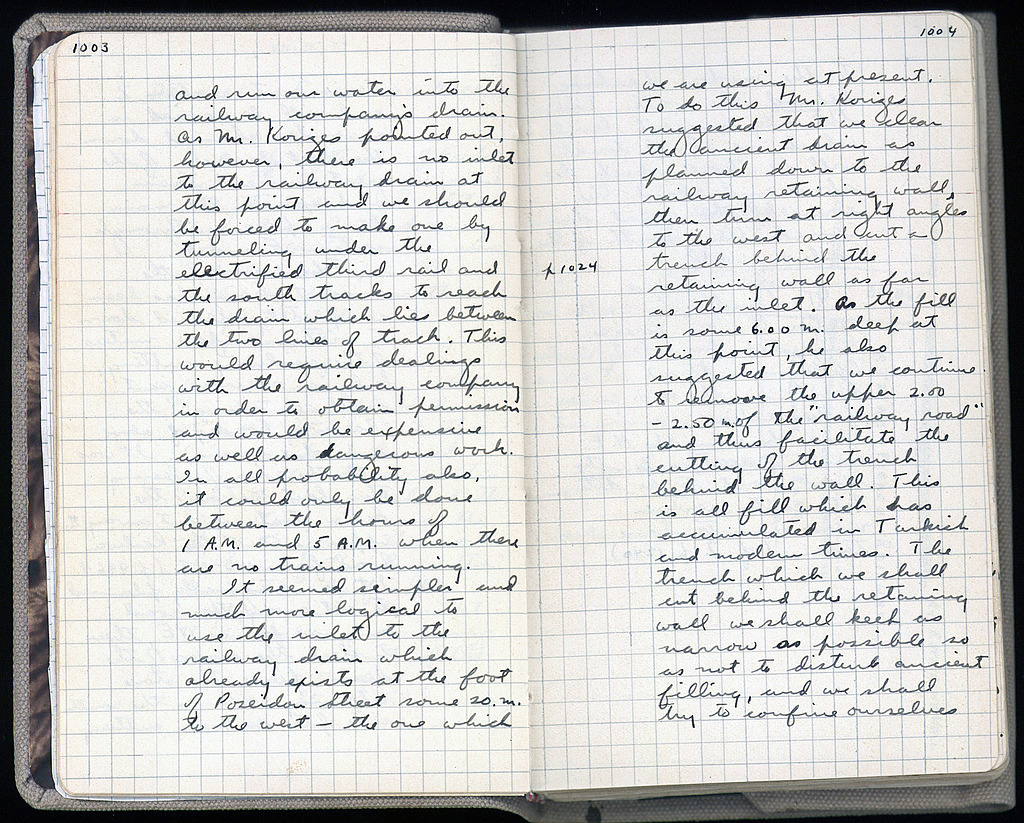 1003
and run our water into the
railway company's drain.
As Mr. Korizes pointed out,
however, there is no inlet
to the railway drain at
this point and we should
be forced to make one by
tunneling under the
electrified third rail and
the south tracks to reach
the drain which lies between
the two lines of track. This
would require dealings
with the railway company
in order to obtain permission
and would be expensive
as well as dangerous work.
In all probability also,
it could only be done
between the hours of
1 A.M. and 5 A.M. when there
are no trains running.
It seemed simpler and
much more logical to
use the inlet to the
railway drain which
already exists at the foot
of Poseidon Street some 20. m.
to the west – the one which
1004
we are using at present.
To do this Mr. Korizes
suggested that we clear
the ancient drain as
planned down to the
railway retaining wall,
then turn at right angles
to the west and cut a
p 1024
trench behind the
retaining wall as far
as the inlet. As the fill
is some 6.00 m. deep at
this point, he also
suggested that we continue
to remove the upper 2.00
– 2.50 m. of the "railway road"
and thus facilitate the
cutting of the trench
behind the wall. This
is all fill which has
accumulated in Turkish
and modern times. The
trench which we shall
cut behind the retaining
wall we shall keep as
narrow as possible so
as not to disturb ancient
filling, and we shall
try to confine ourselves